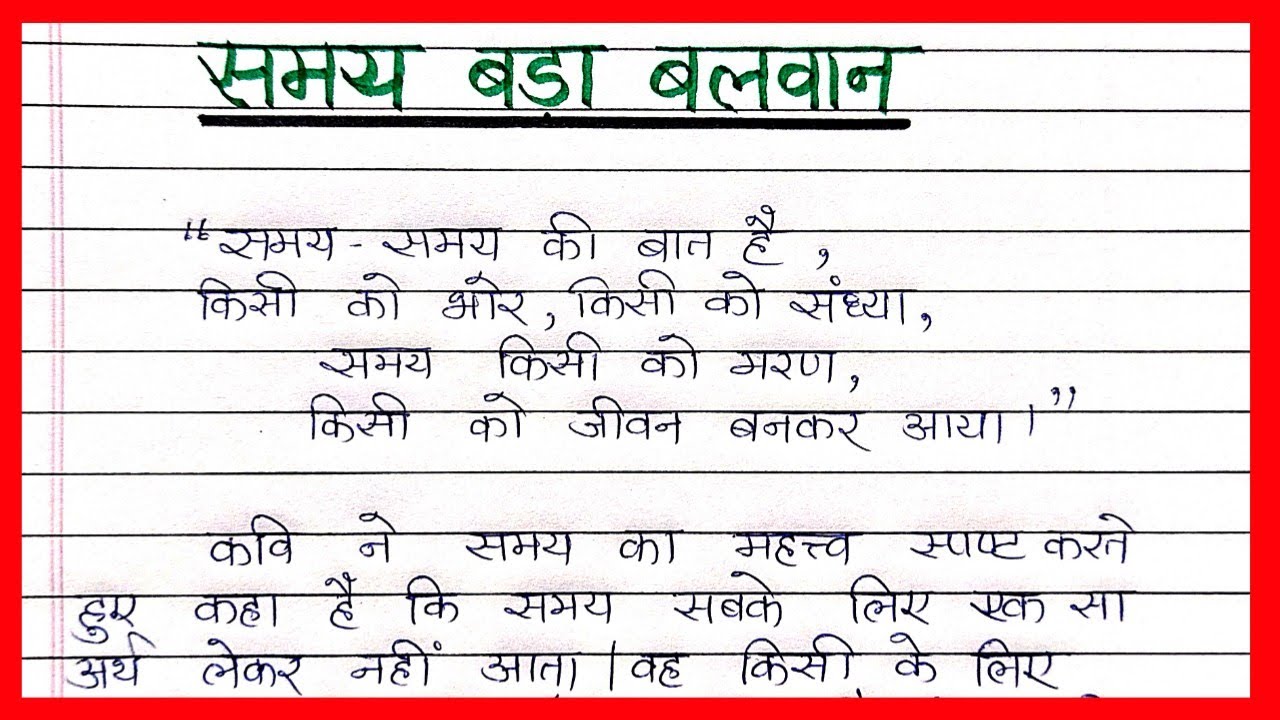 समय बड़ा बलवान
"समय - समय की बात है,
किसी को भोर, किसी को संध्या,
समय किसी को मरण,
किसी को जीवन बनकर आया।"
कवि ने समय का महत्त्व स्पष्ट करते
हुए कहा है कि समय सबके लिए एक सा
अर्थ लेकर नहीं आता। वह किसी के लिए